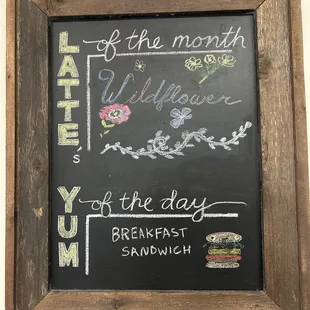 LATTE's of the month
Wildflower
YUM of the day
BREAKFAST
SANDWICH